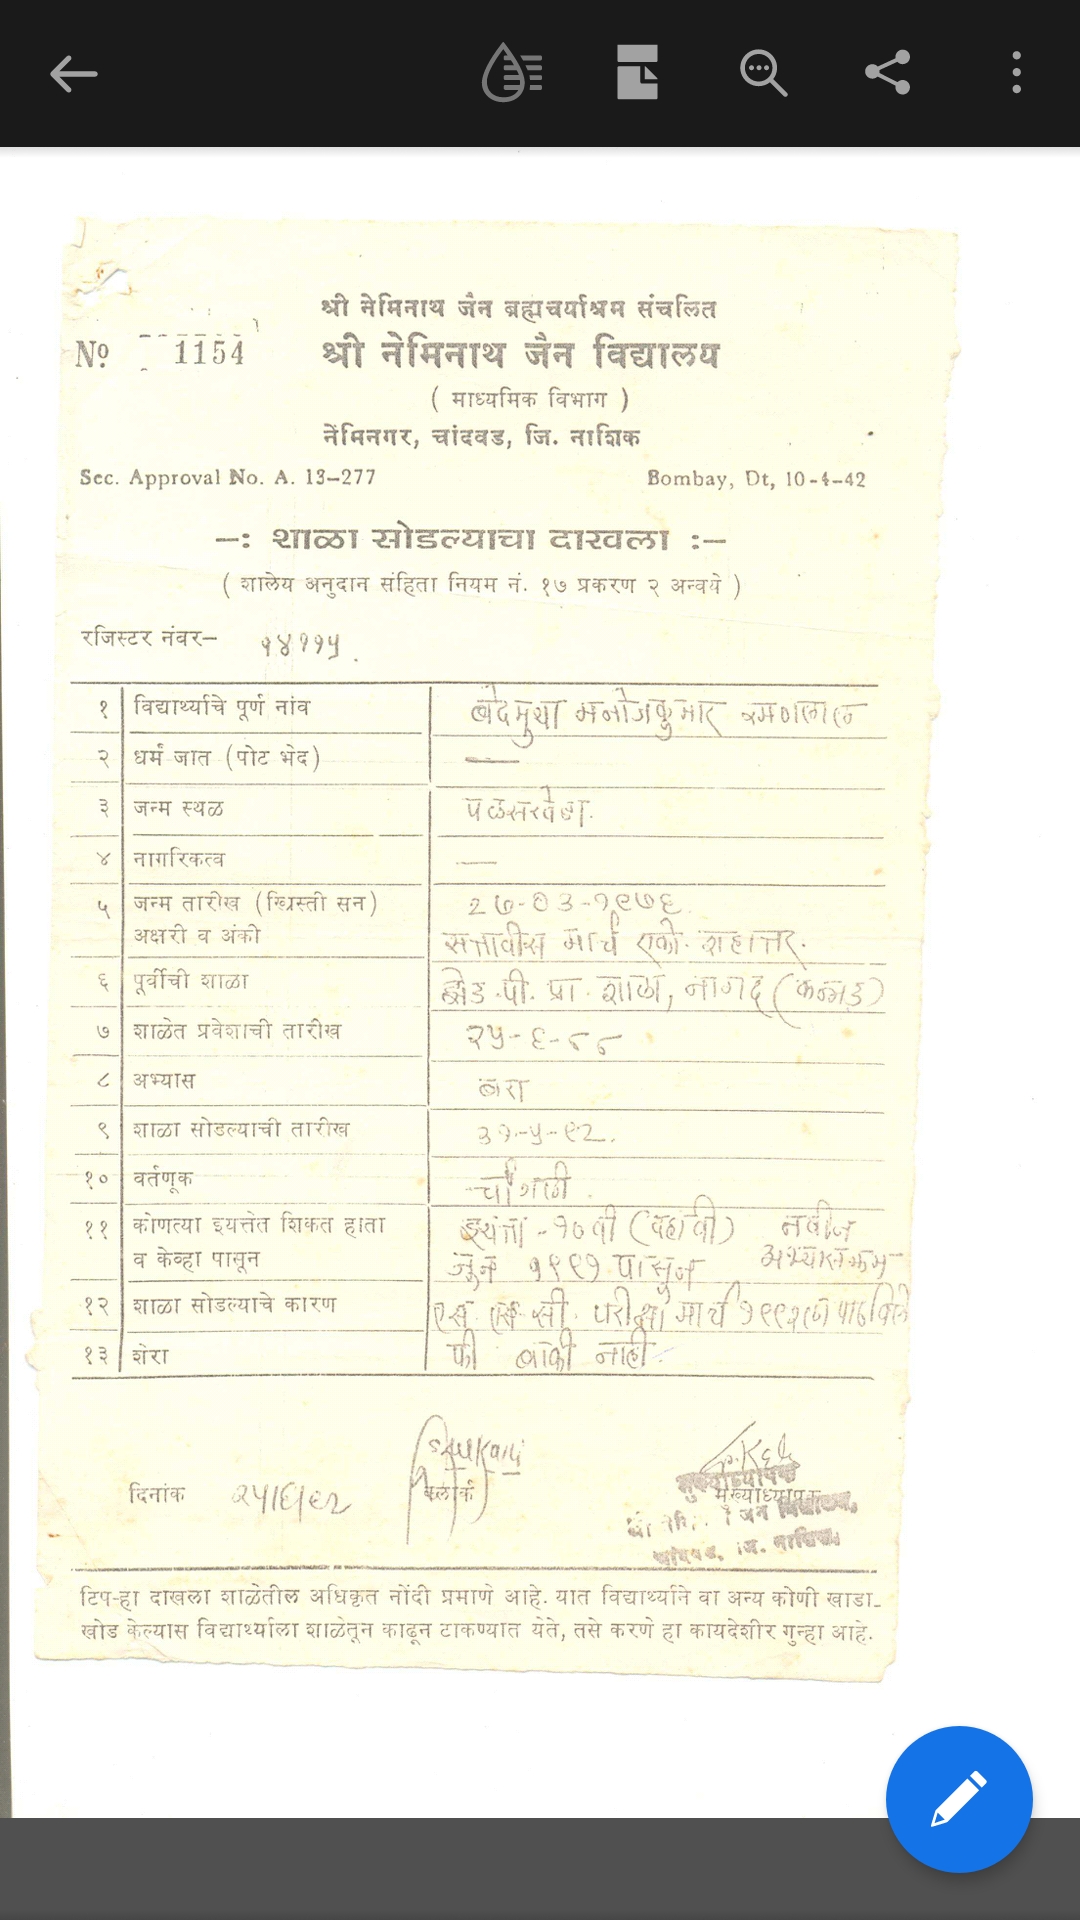 श्री नेमिनाथ जैन ब्रह्मचर्याश्रम संचलित
№ 1154 श्री नेमिनाथ जैन विद्यालय
( माध्यमिक विभाग )
नेमिनगर, चांदवड, जि. नाशिक
Sec. Approval No. A. 13-277 Bombay, Dt, 10-4-42
-: शाळा सोडल्याचा दाखला :-
( शालेय अनुदान संहिता नियम नं. १७ प्रकरण २ अन्वये )
रजिस्टर नंबर- १४११५
१ विद्यार्थ्याचे पूर्ण नांव बेदमुथा मनोजकुमार रमणलाल
२ धर्म जात (पोट भेद) —
३ जन्म स्थळ पळसखेडा.
४ नागरिकत्व —
५ जन्म तारीख (ख्रिस्ती सन) २७-०३-१९७६.
अक्षरी व अंकी सत्तावीस मार्च एको. शहात्तर.
६ पूर्वीची शाळा झेड.पी. प्रा. शाळा, नागद (कन्नड)
७ शाळेत प्रवेशाची तारीख २५-६-८८
८ अभ्यास बरा
९ शाळा सोडल्याची तारीख ३१-५-९२.
१० वर्तणूक चांगली.
११ कोणत्या इयत्तेत शिकत होता इयत्ता - १० वी (दहावी) नवीन
व केव्हा पासून जून १९९१ पासून अभ्यासक्रम
१२ शाळा सोडल्याचे कारण एस. एस. सी. परीक्षा मार्च १९९२ला
१३ शेरा फी बाकी नाही.
दिनांक २५/६/९२ क्लार्क मुख्याध्यापक
मुख्याध्यापक
जैन विद्यालय,
चांदवड, जि. नाशिक.
टिप-हा दाखला शाळेतील अधिकृत नोंदी प्रमाणे आहे. यात विद्यार्थ्याने वा अन्य कोणी खाडा-
खोड केल्यास विद्यार्थ्याला शाळेतून काढून टाकण्यात येते, तसे करणे हा कायदेशीर गुन्हा आहे.